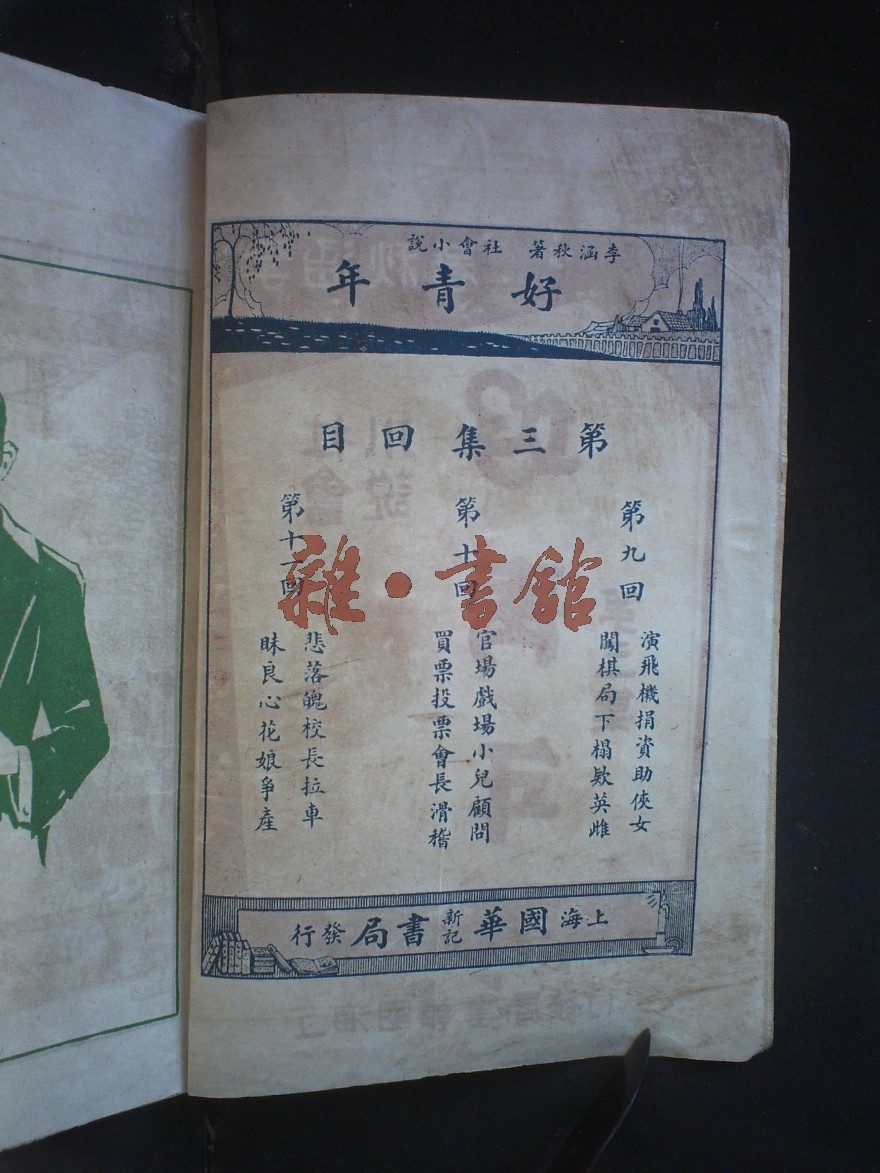 李涵秋著 社會小說
好青年
第三集回目
第九回
演飛機捐資助俠女
闖棋局下榻款英雌
第十回
官場戲場小兒顧問
買票投票會長滑稽
第十一回
悲落魄校長拉車
昧良心花娘爭產
上海國華新記書局發行
雜·書館